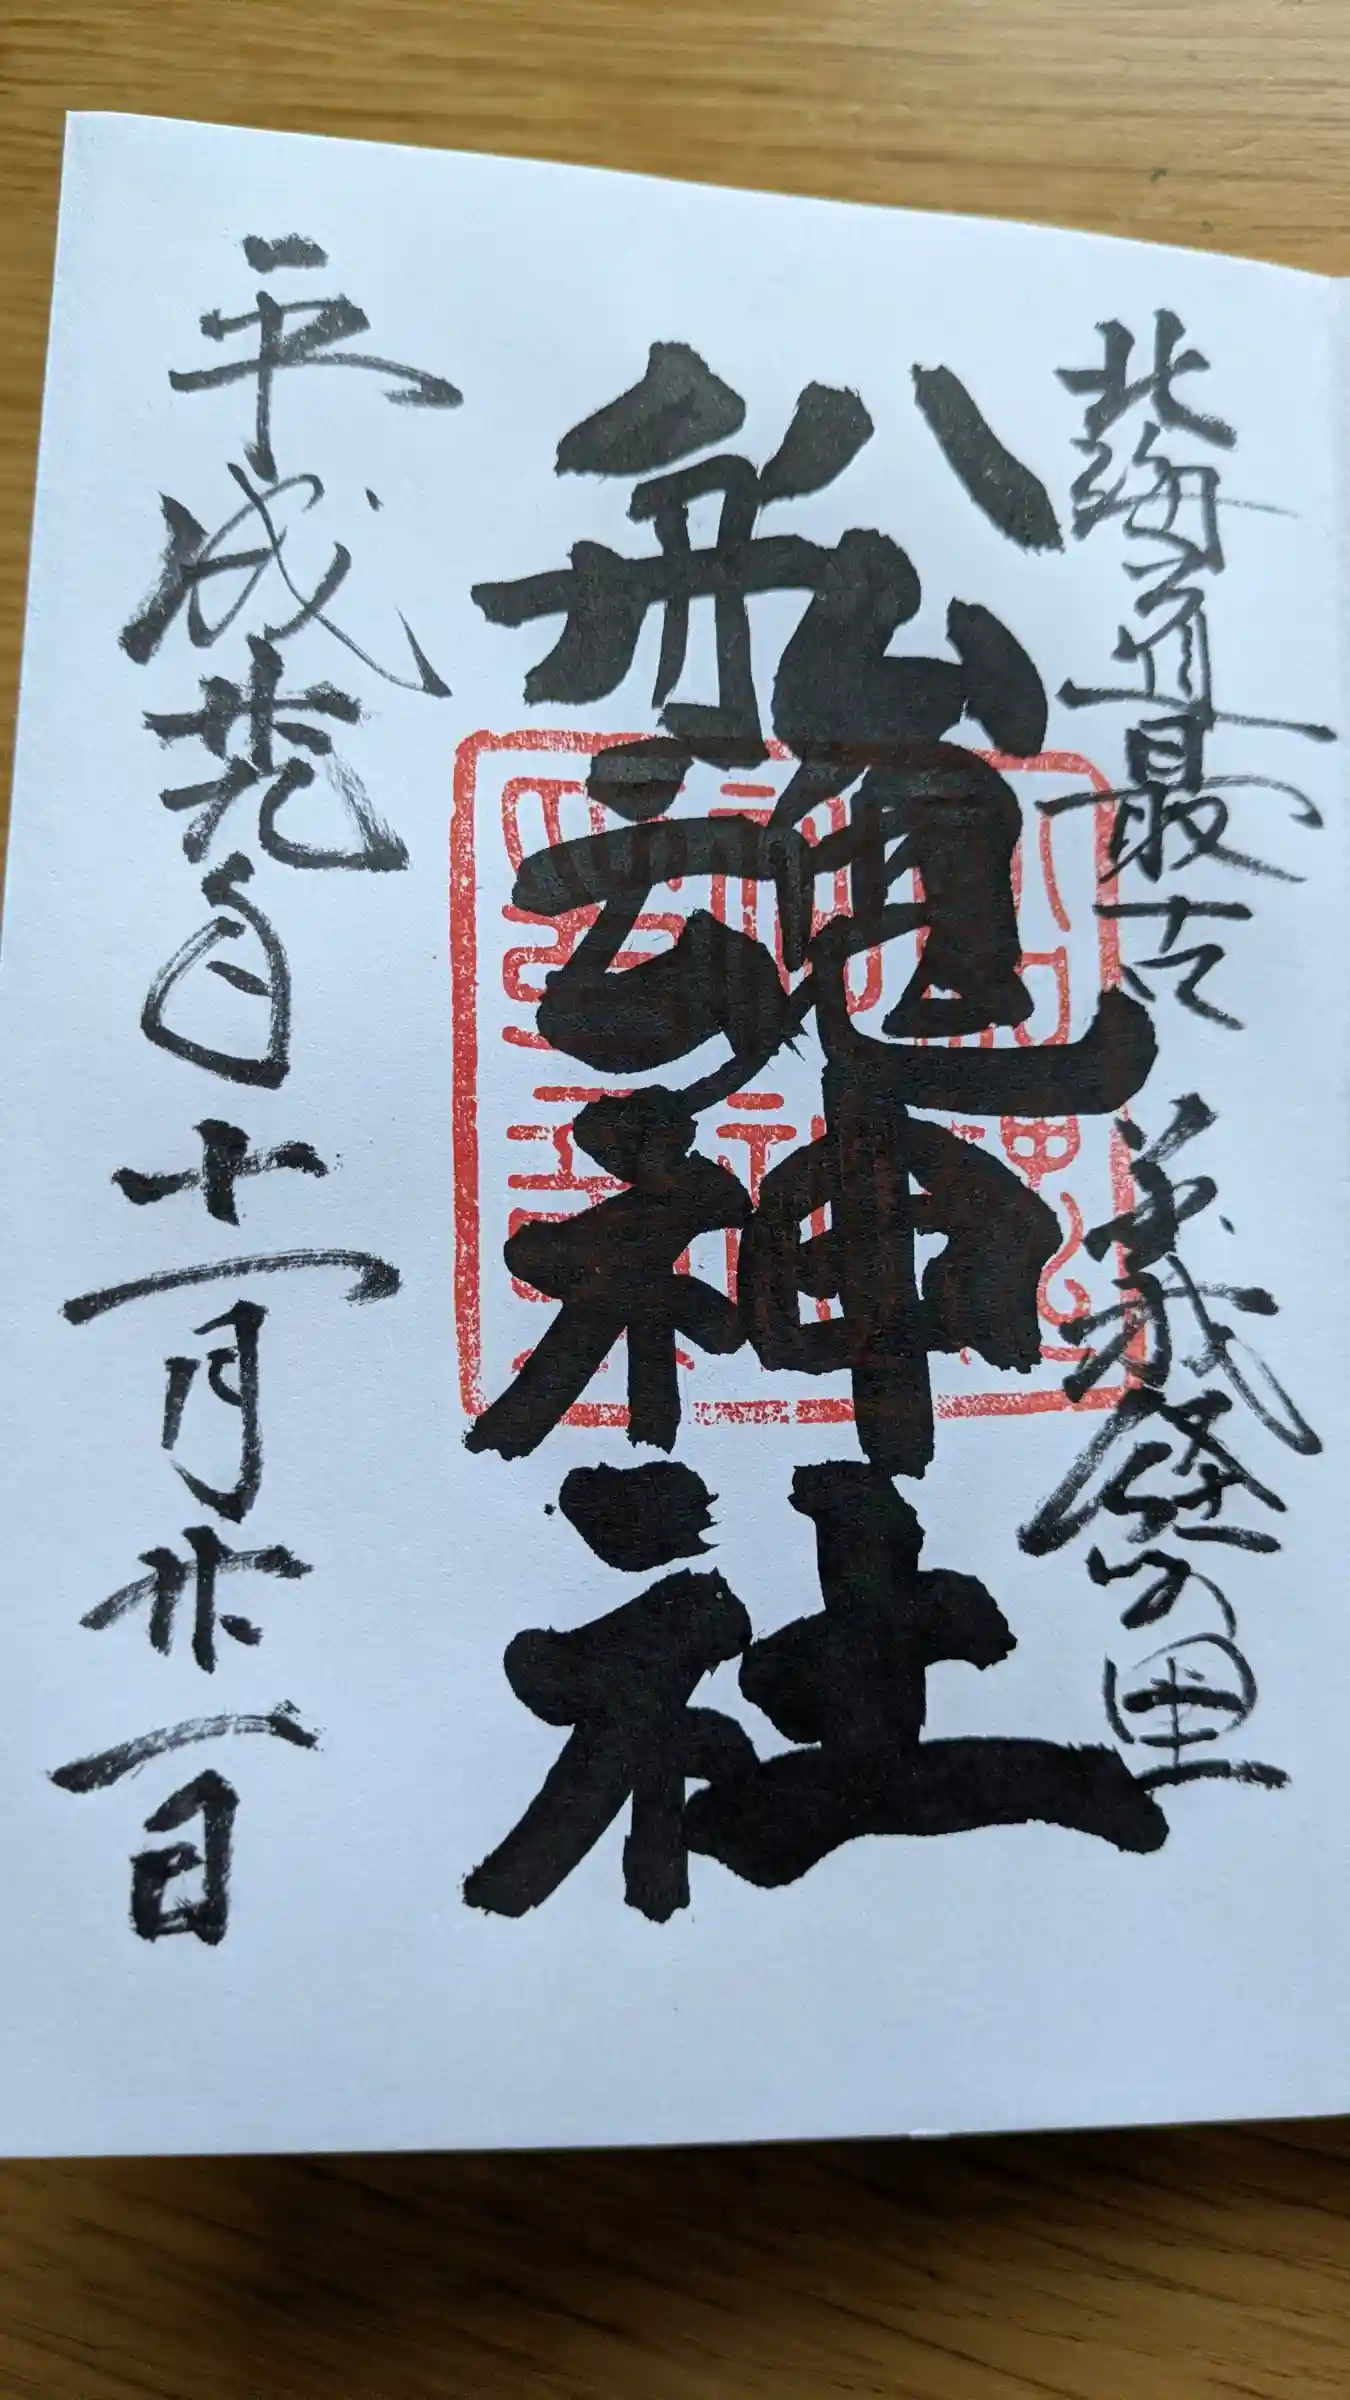 北海道最古 義経の里
舩魂神社
平成廿九年十一月廿一日